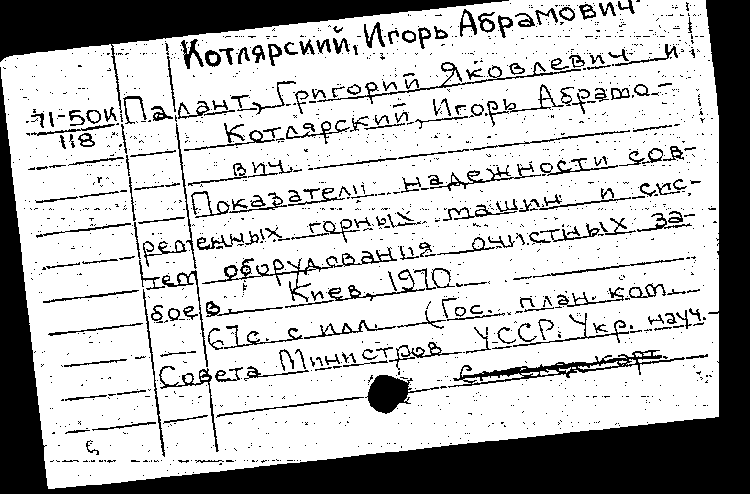 Котлярский, Игорь Абрамович
71-50к
118
Палант, Григорий Яковлевич и
Котлярский, Игорь Абрамо-
вич.
Показатели надежности сов-
ременных горных машин и сис-
тем оборудования очистных за-
боев. Киев, 1970.
67с. с илл. (Гос. план. ком.
Совета Министров УССР. Укр. науч.